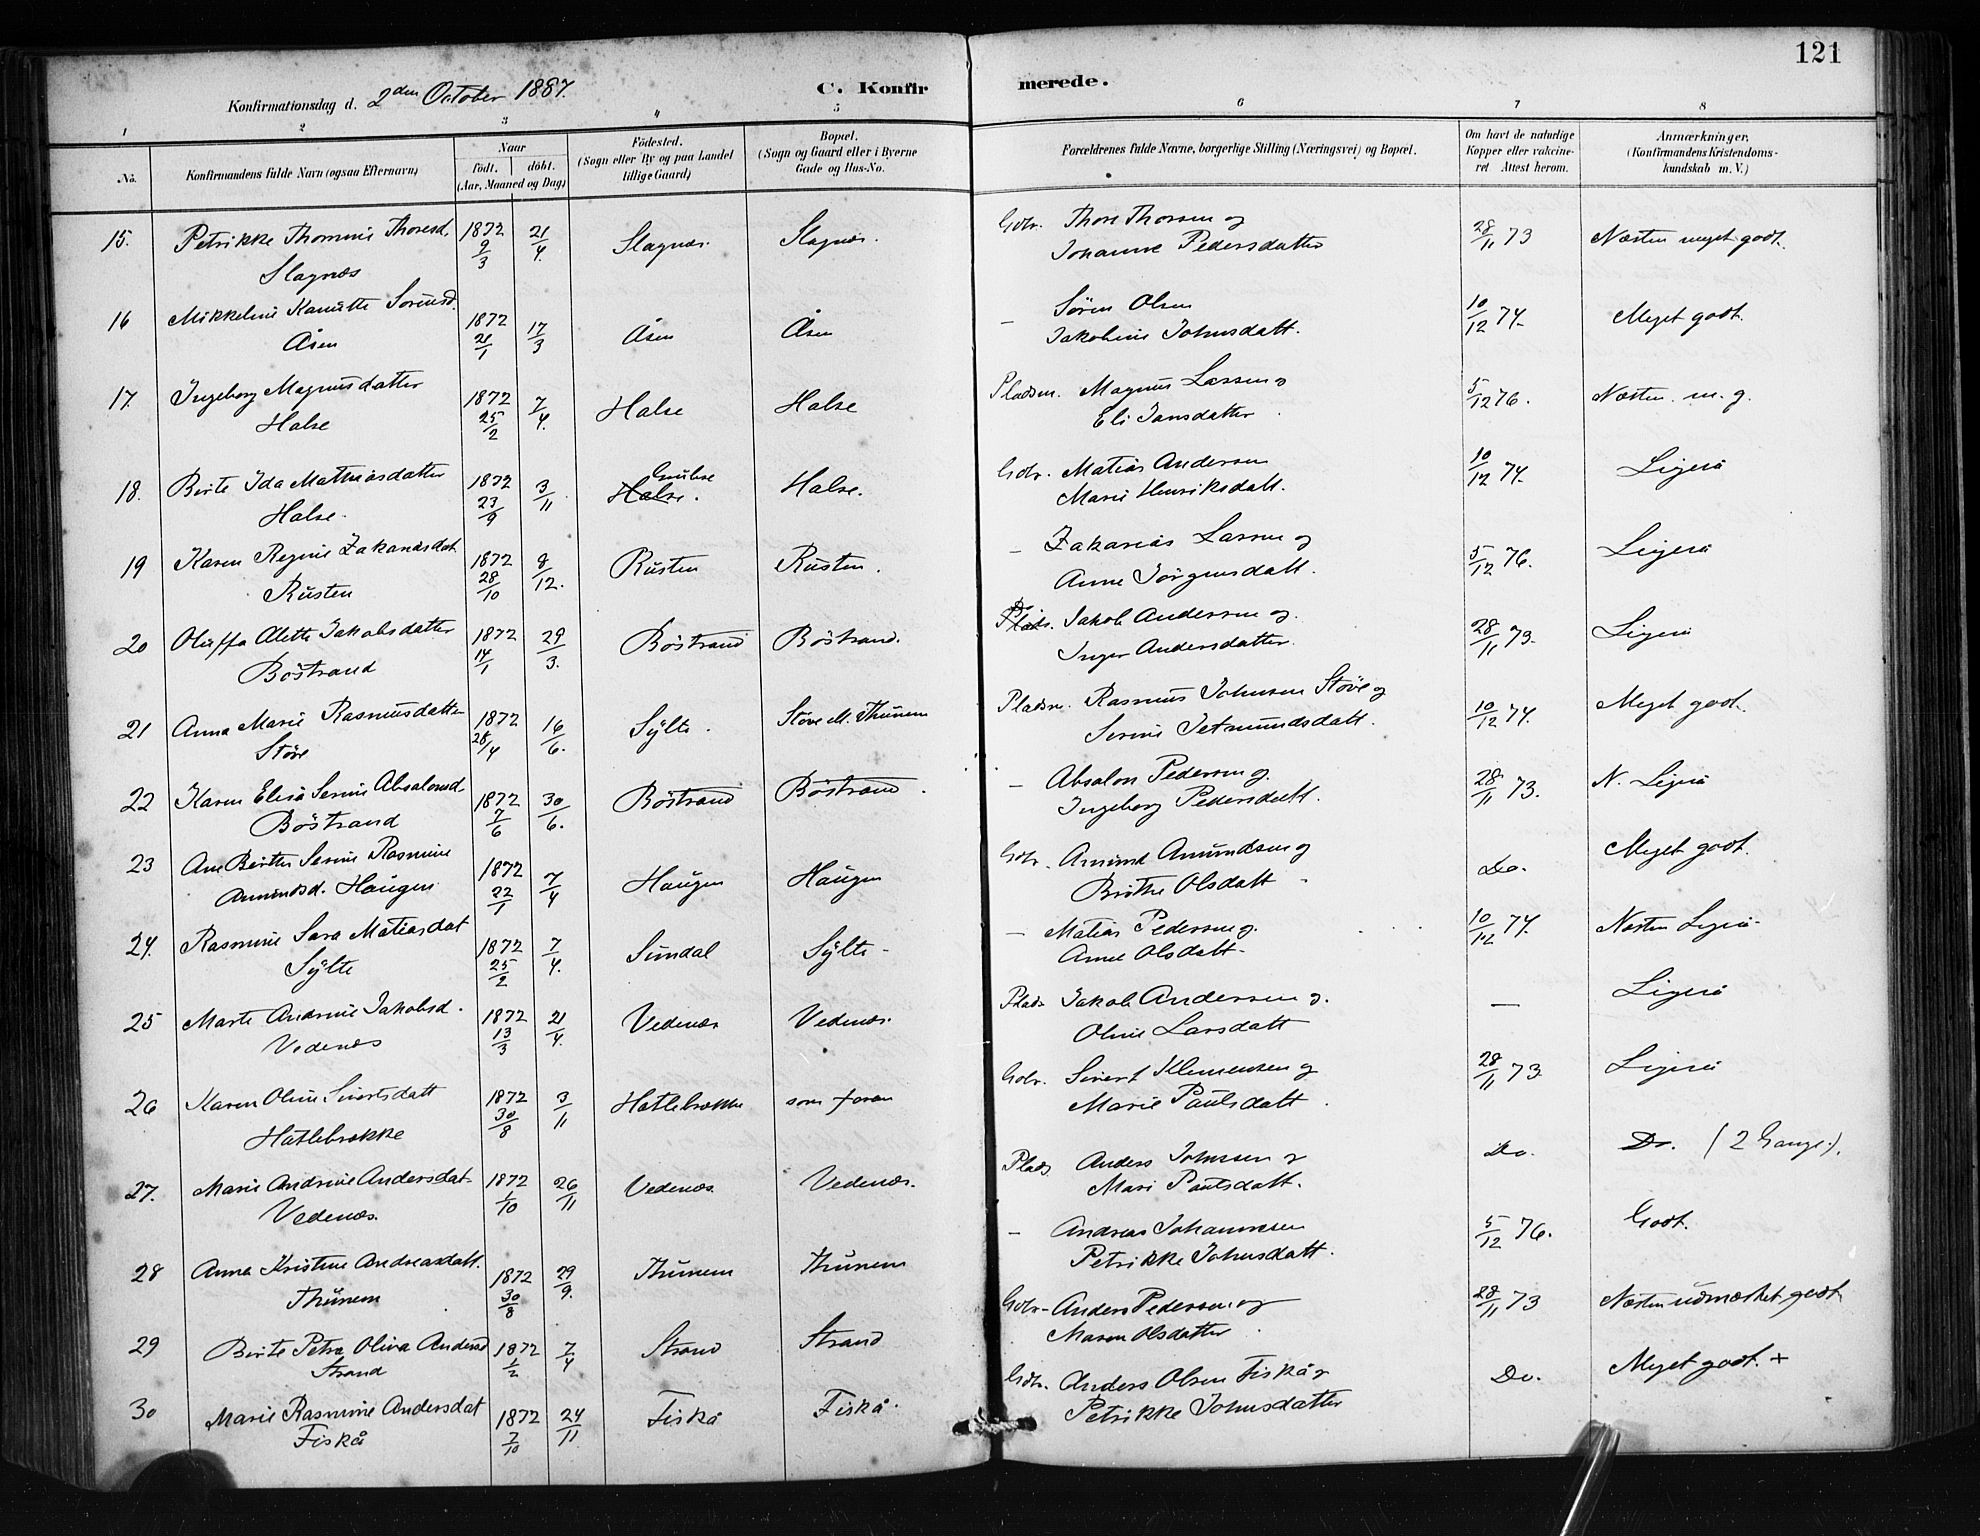 121
Konfirmationsdag d. 2den October 1887.
C. Konfirmerede.
1 2 3 4 5 6 7 8
No.
Konfirmandens fulde Navn (ogsaa Efternavn)
Naar
født. døbt.
(Aar, Maaned og Dag)
Fødested.
(Sogn eller By og paa Landet
tillige Gaard)
Bopæl.
(Sogn og Gaard eller i Byerne
Gade og Hus-No.
Forældrenes fulde Navne, borgerlige Stilling (Næringsvei) og Bopæl.
Om havt de naturlige
Kopper eller vakcine-
ret Attest herom.
Anmærkninger,
(Konfirmandens Kristendoms-
kundskab m. V.)
15. Petrikke Thomine Thoresd. 1872 21/4 Slagnæs. Slagnæs. Gbr. Thore Thorsen og 28/11 73 Næsten meget godt.
Slagnæs 9/3 Johanne Pedersdatter
16 Mikkeline Kanutte Sørensd. 1872 17/3 Åsen Åsen – Søren Olsen 10/12 74. Meget godt.
Åsen 21/1 Jakobine Johnsdatt.
17. Ingeborg Magnusdatter 1872 7/4. Halse Halse Pladsm. Magnus Lassen og 5/12 76. Næsten m. g.
Halse 25/2 Eli Jansdatter
18. Berte Ida Mathiasdatter 1872 3/11 Halse. Halse. Gbr. Matias Andersen 10/12 74. Ligeså
Halse. 23/9 Marie Henriksdatt.
19 Karen Regine Zakariasdat 1872 8/12. Rusten Rusten. – Zakarias Larsen og 5/12 76. Ligeså
Rusten 28/10 Anne Jörgensdatt.
20 Oluffa Alette Jakobsdatter 1872 29/3. Böstrand Böstrand. Jakob Andersen og. 28/11 73. Ligeså
Böstrand 14/1 Inger Andersdatter.
21 Anna Marie Rasmusdatter 1872 16/6. Sylte. Støve M. Thunem Pladsm. Rasmus Johnsen Støve og 10/12 74. Meget godt.
Støve 28/4 Serine Jetmundsdatt.
22 Karen Elisa Serine Absalonsd 1872 30/6. Böstrand Böstrand. – Absalon Pedersen og. 28/11 73. N. Ligeså
Böstrand 7/6 Ingeborg Pedersdatt.
23 Ane Berthe Serine Rasmine 1872 7/4 Haugen Haugen Gbr. Amund Amundsen og Do. Meget godt.
Amundsd. Haugen 22/1 Brithe Olsdatt
24. Rasmine Sara Matiasdat 1872 7/4. Sundal Sylte – Matias Pedersen og. 10/12 74. Næsten Ligeså
Sylte 25/2 Anne Olsdatt
25 Marte Andrine Jakobsd. 1872 21/4. Vedenæs Vedenæs. Plads Jakob Andersen og. – Ligeså
Vedenæs 13/3 Oline Larsdatt
26 Karen Oline Sivertsdatt 1872 3/11 Hatlebrække som foran Gbr. Sivert Klemensen og 28/11 73. Ligeså
Hatlebrække 30/8 Marie Paulsdatt.
27. Marie Andrine Andersdat. 1872 26/11 Vedenæs. Vedenæs. Plads Anders Johnsen og Do. Do. (2 Gange).
Vedenæs. 1/10 Mari Paulsdatt.
28 Anna Kristine Andreasdatt. 1872 29/9. Thunem Thunem – Andreas Johannesen 5/12 76. Godt.
Thunem 30/8 Petrikke Johnsdatt.
29 Berte Petra Oliva Andersd 1872 7/4 Strand Strand Gbr. Anders Pedersen og 28/11 73 Næsten udmærket godt
Strand 1/2 Maren Olsdatter
30 Marie Rasmine Andersdat 1872 24/11 Fiskå Fiskå. Gbr. Anders Olsen Fiskå og Do. Meget godt. +
Fiskå 7/10 Petrikke Johnsdatter